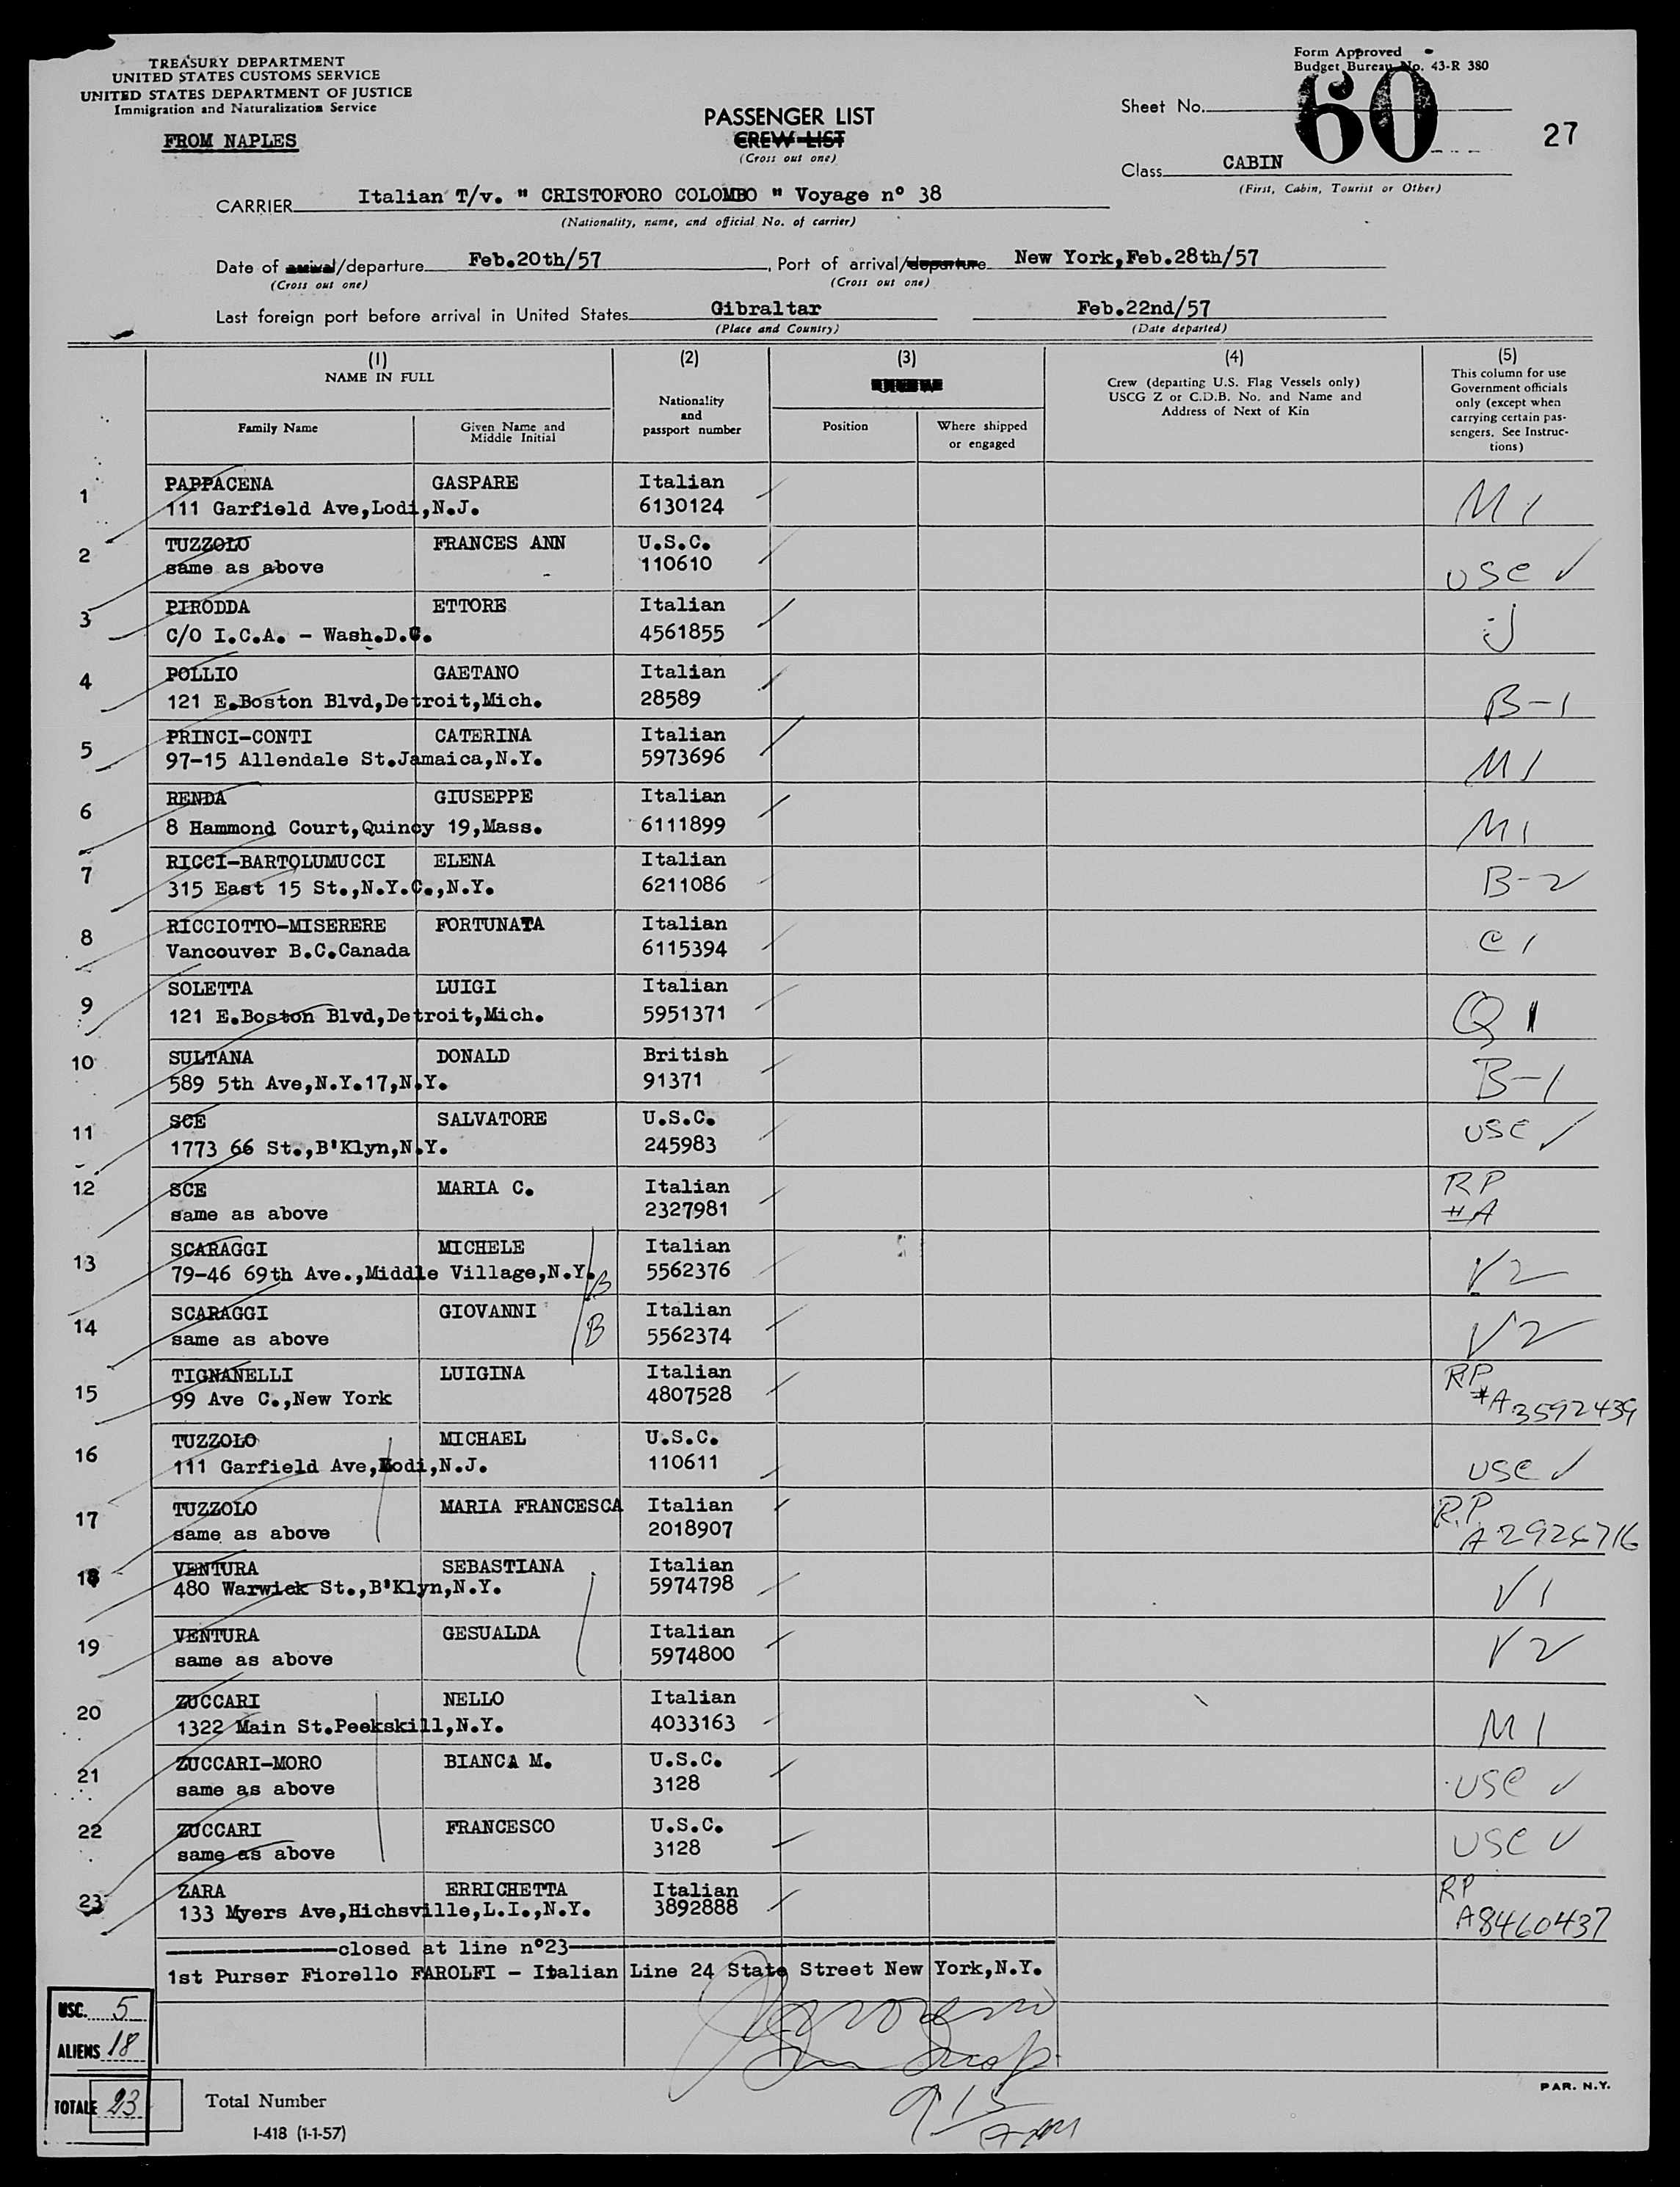 TREASURY DEPARTMENT
UNITED STATES CUSTOMS SERVICE
UNITED STATES DEPARTMENT OF JUSTICE
Immigration and Naturalization Service
FROM NAPLES
PASSENGER LIST
CREW LIST
(Cross out one)
Form Approved
Budget Bureau No. 43-R 380
Sheet No. 60
27
Class CABIN
(First, Cabin, Tourist or Other)
CARRIER Italian T/v. " CRISTOFORO COLOMBO " Voyage nº 38
(Nationality, name, and official No. of carrier)
Date of arrival/departure Feb.20th/57, Port of arrival/departure New York,Feb.28th/57
(Cross out one) (Cross out one)
Last foreign port before arrival in United States Gibraltar Feb.22nd/57
(Place and Country) (Date departed)
(1) (2) (3) (4) (5)
NAME IN FULL
Family Name
Given Name and
Middle Initial
Nationality
and
passport number
Position
Where shipped
or engaged
Crew (departing U.S. Flag Vessels only)
USCG Z or C.D.B. No. and Name and
Address of Next of Kin
This column for use
Government officials
only (except when
carrying certain pas-
sengers. See Instruc-
tions)
1 PAPPACENA GASPARE Italian
111 Garfield Ave,Lodi,N.J. 6130124 M1
2 TUZZOLO FRANCES ANN U.S.C.
same as above 110610 USC ✓
3 PIRODDA ETTORE Italian
C/O I.C.A. - Wash.D.C. 4561855 J
4 POLLIO GAETANO Italian
121 E.Boston Blvd,Detroit,Mich. 28589 B-1
5 PRINCI-CONTI CATERINA Italian
97-15 Allendale St.Jamaica,N.Y. 5973696 M1
6 RENDA GIUSEPPE Italian
8 Hammond Court,Quincy 19,Mass. 6111899 M1
7 RICCI-BARTOLUMUCCI ELENA Italian
315 East 15 St.,N.Y.C.,N.Y. 6211086 B-2
8 RICCIOTTO-MISERERE FORTUNATA Italian
Vancouver B.C.Canada 6115394 C1
9 SOLETTA LUIGI Italian
121 E.Boston Blvd,Detroit,Mich. 5951371 Q1
10 SULTANA DONALD British
589 5th Ave,N.Y.17,N.Y. 91371 B-1
11 SCE SALVATORE U.S.C.
1773 66 St.,B'Klyn,N.Y. 245983 USC ✓
12 SCE MARIA C. Italian RP
same as above 2327981 #A
13 SCARAGGI MICHELE Italian
79-46 69th Ave.,Middle Village,N.Y. B 5562376 V2
14 SCARAGGI GIOVANNI Italian
same as above B 5562374 V2
15 TIGNANELLI LUIGINA Italian RP
99 Ave C.,New York 4807528 #A3592439
16 TUZZOLO MICHAEL U.S.C.
111 Garfield Ave,Lodi,N.J. 110611 USC ✓
17 TUZZOLO MARIA FRANCESCA Italian R.P.
same as above 2018907
18 VENTURA SEBASTIANA Italian
480 Warwick St.,B'Klyn,N.Y. 5974798 V1
19 VENTURA GESUALDA Italian
same as above 5974800 V2
20 ZUCCARI NELLO Italian
1322 Main St.Peekskill,N.Y. 4033163 M1
21 ZUCCARI-MORO BIANCA M. U.S.C.
same as above 3128 USC ✓
22 ZUCCARI FRANCESCO U.S.C.
same as above 3128 USC ✓
23 ZARA ERRICHETTA Italian RP
133 Myers Ave,Hichsville,L.I.,N.Y. 3892888 A8460437
closed at line nº23
1st Purser Fiorello FAROLFI - Italian Line 24 State Street New York,N.Y.
USC. 5
ALIENS 18
TOTALE 23
Total Number
I-418 (1-1-57)
PAR. N.Y.